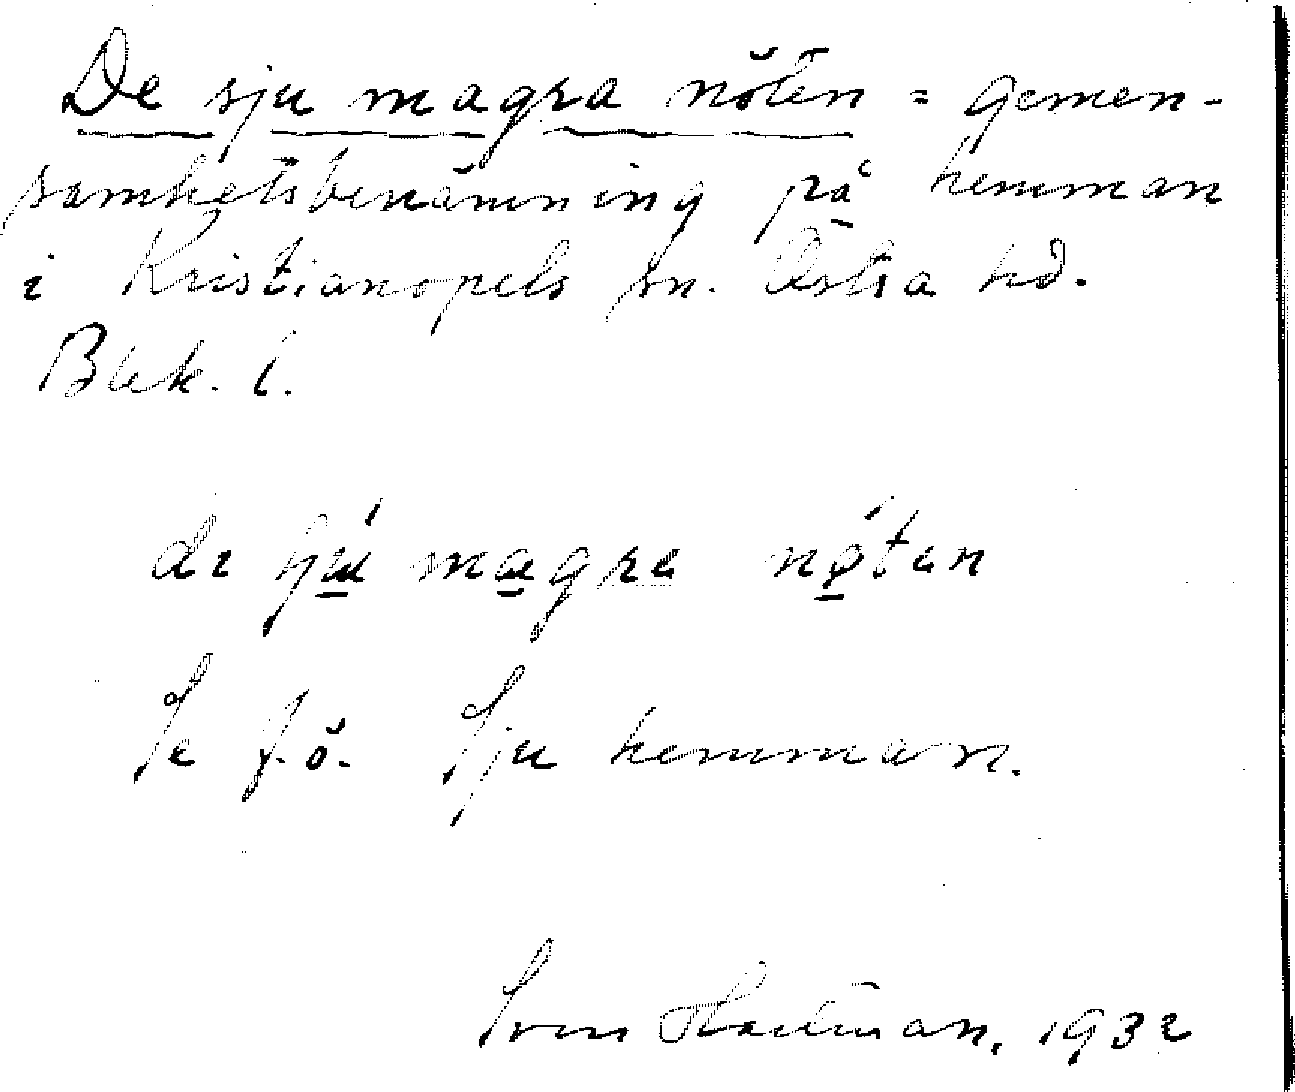 De sju magra nöten = gemen-
samhetsbenämning på hemman
i Kristianopels sn. Östra hd.
Blek. l.
de magra nøten
Se f.ö. Sju hemman.
Sven 1932